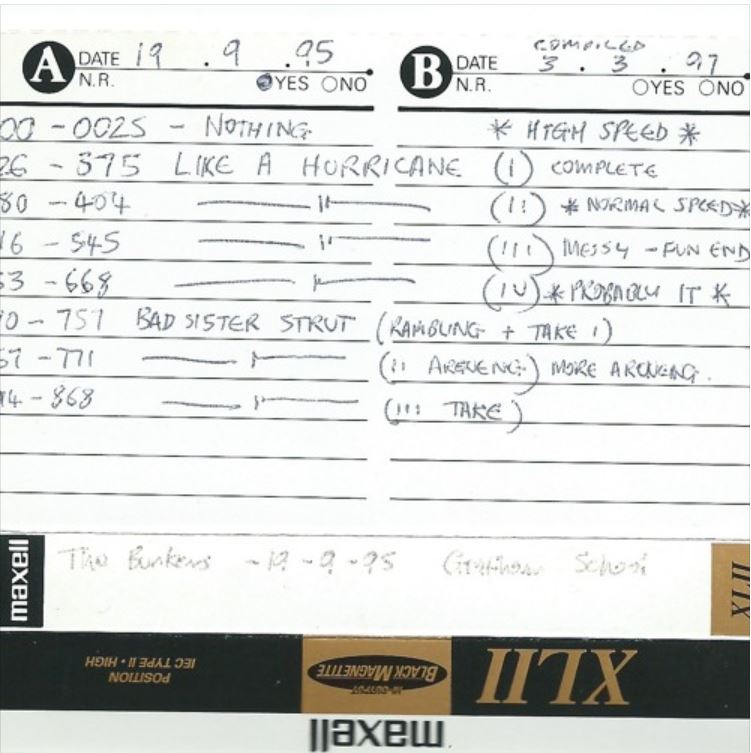 A DATE 19 . 9 . 95
N.R. YES NO
B DATE COMPILED 3 . 3 . 97
N.R. YES NO
00 - 0025 - NOTHING
* HIGH SPEED *
26 - 375 LIKE A HURRICANE (I) COMPLETE
80 - 404 —— 11 —— (II) * NORMAL SPEED *
16 - 545 —— 11 —— (III) MESSY - FUN END
53 - 668 —— 1 —— (IV) * PROBABLY IT *
10 - 757 BAD SISTER STRUT (RAMBLING + TAKE 1)
57 - 771 —— 1 —— (II ARGUENG) MORE ARGUENG.
94 - 868 —— 1 —— (III TAKE)
maxell
The Bunkers - 19 - 9 - 95 School
XLII
POSITION HIGH • IEC TYPE II
HI-OUTPUT BLACK MAGNETITE
XLII
maxell